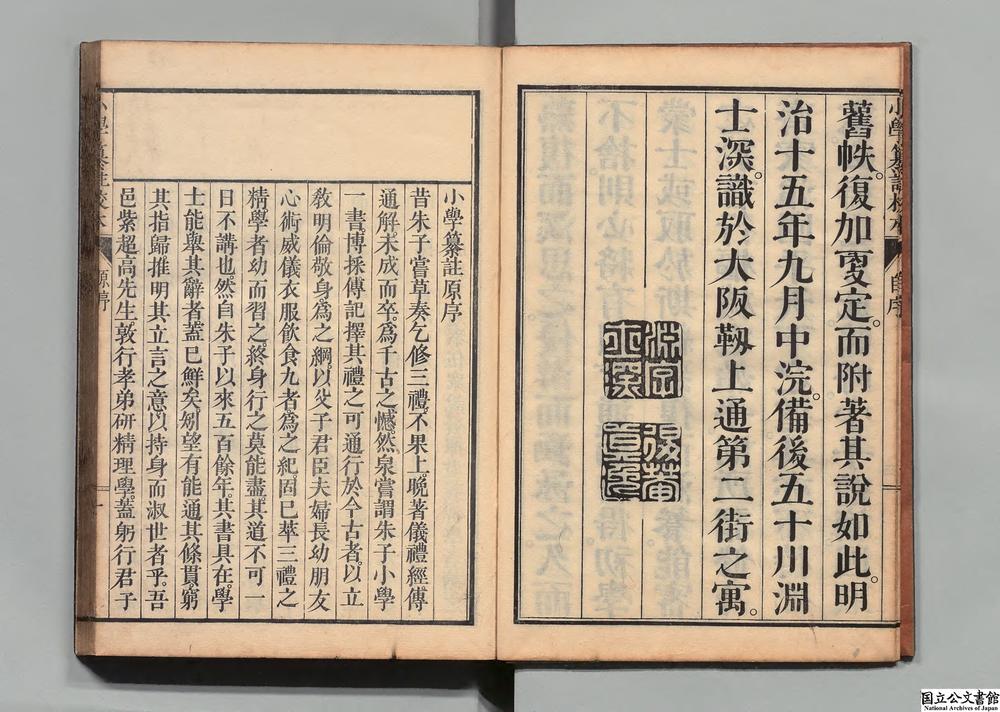 舊帙。復加覂定。而附著其說如此。明
治十五年九月中浣。備後五十川淵
士深識於大阪靱上通第二街之寓。
小學纂註原序
昔朱子嘗草奏乞修三禮。不果上。晚著儀禮經傳
通解。未成而卒。爲千古之憾。然泉嘗謂朱子小學
一書。博採傳記。擇其禮之可通行於今古者。以立
敎明倫敬身爲之綱。以父子君臣夫婦長幼朋友
心術威儀衣服飮食九者爲之紀。固已萃三禮之
精。學者幼而習之。終身行之。莫能盡其道。不可一
日不講也。然自朱子以來五百餘年。其書具在。學
士能舉其辭者。蓋已鮮矣。矧望有能通其條貫。窮
其指歸。推明其立言之意。以持身而淑世者乎。吾
邑紫超高先生。敦行孝弟。硏精理學。蓋躬行君子
小學纂註校本
原序
國立公文書館
National Archives of Japan